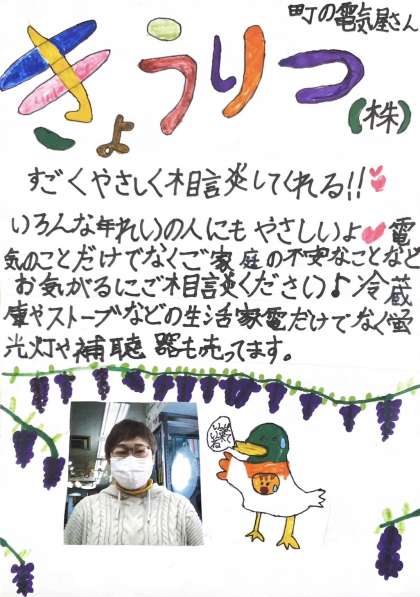 町の電気屋さん
きょうりつ
(株)
すごくやさしく相談してくれる!!
いろんな年れいの人にもやさしいよ♥電
気のことだけでなくご家庭の不安なことなど
お気がるにご相談ください♪冷蔵
庫やストーブなどの生活家電だけでなく蛍
光灯や補聴器も売ってます。